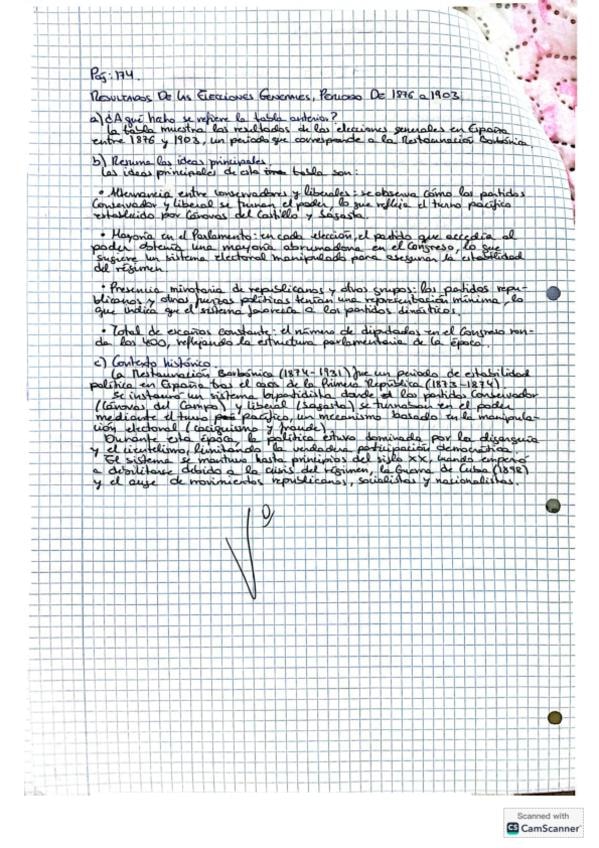 Pág: 174.
RESULTADOS DE LAS ELECCIONES GENERALES, PERIODO DE 1876 a 1903
a) ¿A qué hecho se refiere la tabla anterior?
La tabla muestra los resultados de las elecciones generales en España
entre 1876 y 1903, un periodo que corresponde a la Restauración Borbónica.
b) Resume las ideas principales.
Las ideas principales de esta tabla son:
• Alternancia entre conservadores y liberales: se observa cómo los partidos
Conservador y liberal se turnan el poder, lo que refleja el turno pacífico
establecido por Cánovas del Castillo y Sagasta.
• Mayoría en el Parlamento: en cada elección, el partido que accedía al
poder obtenía una mayoría abrumadora en el Congreso, lo que
sugiere un sistema electoral manipulado para asegurar la estabilidad
del régimen.
• Presencia minoritaria de republicanos y otros grupos: los partidos repu-
blicanos y otras fuerzas políticas tenían una representación mínima, lo
que indica que el sistema favorecía a los partidos dinásticos.
• Total de escaños constante: el número de diputados en el Congreso ron-
da los 400, reflejando la estructura parlamentaria de la época.
c) Contexto histórico
La Restauración Borbónica (1874-1931) fue un periodo de estabilidad
política en España tras el caos de la Primera República (1873-1874).
Se instauró un sistema bipartidista donde los partidos Conservador
(Cánovas del Campo) y liberal (Sagasta) se turnaban en el poder
mediante el turno pacífico, un mecanismo basado en la manipula-
ción electoral (caciquismo y fraude).
Durante esta época, la política estuvo dominada por la oligarquía
y el clientelismo, limitando la verdadera participación democrática.
El sistema se mantuvo hasta principios del siglo XX, cuando empezó
a debilitarse debido a la crisis del régimen, la Guerra de Cuba (1898)
y el auge de movimientos republicanos, socialistas y nacionalistas.
Scanned with
CS CamScanner